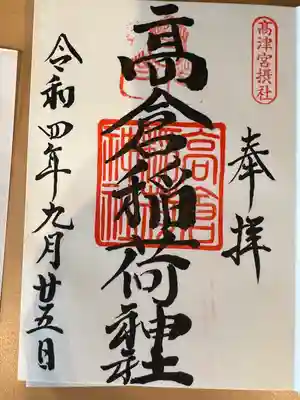 高津宮摂社
奉拝
髙倉稲荷神社
令和四年九月廿五日